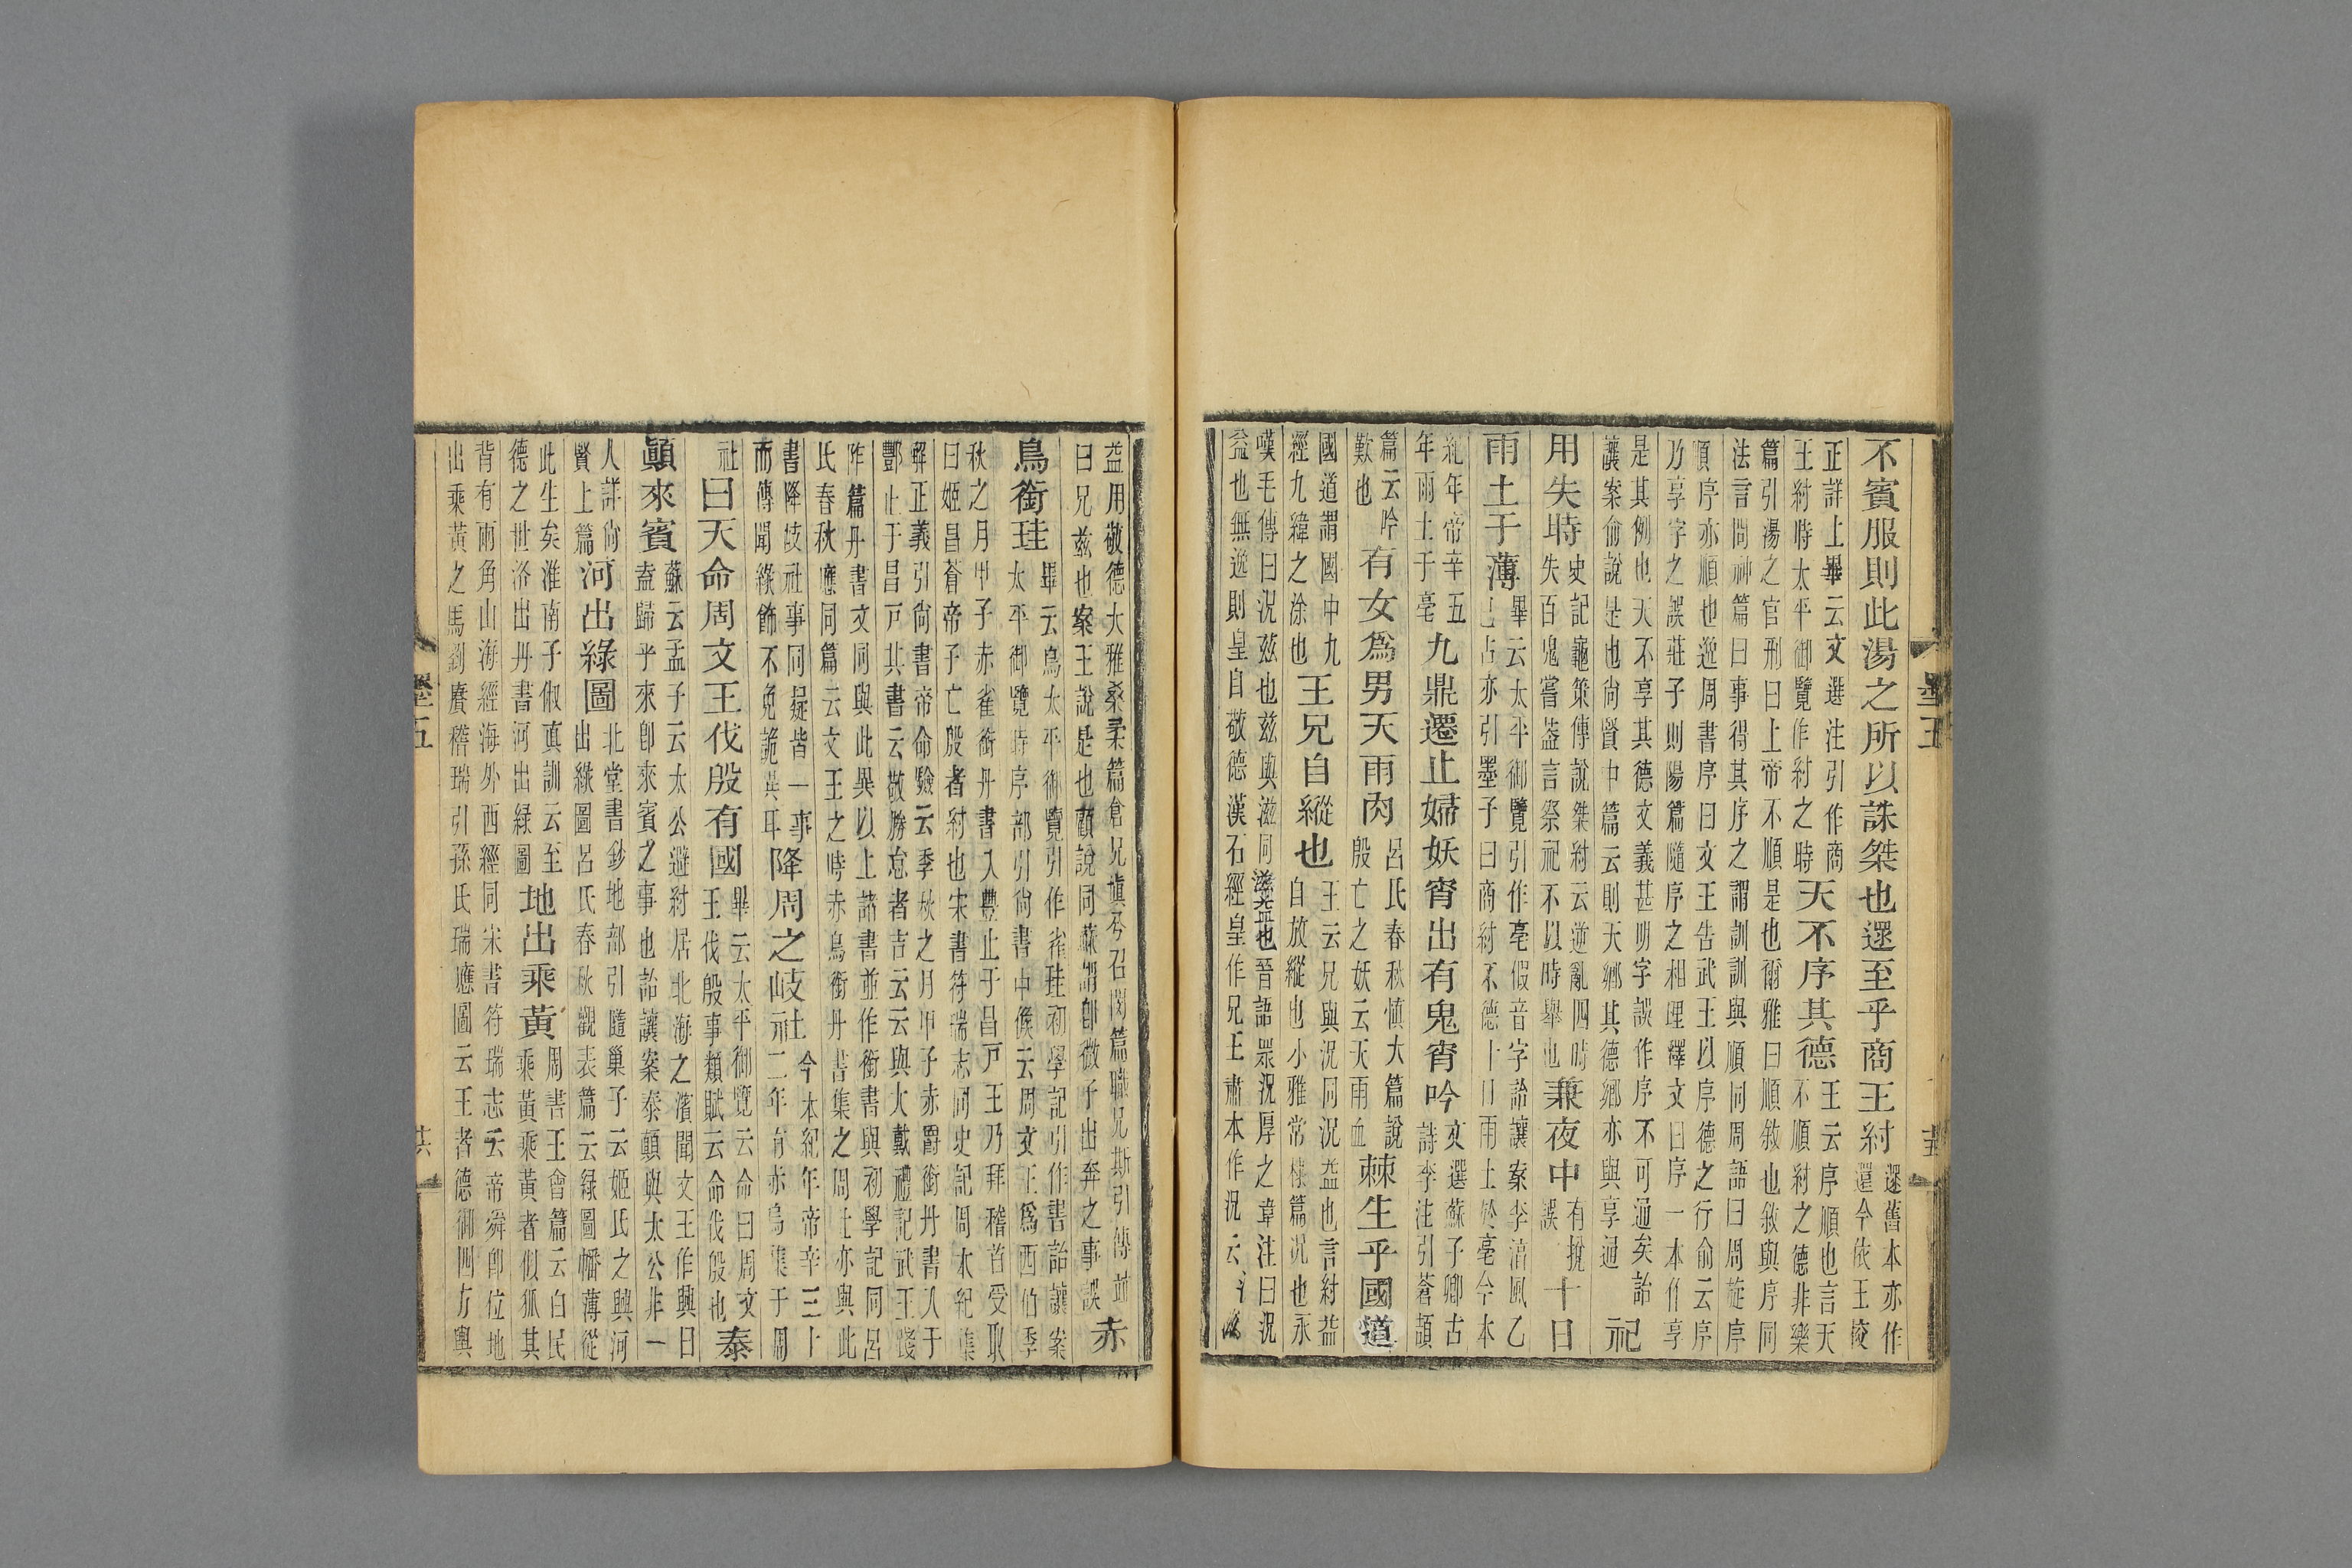 不賓服則此湯之所以誅桀也遝至乎商王紂
遝舊本亦作
還今依王挍
正詳上畢云文選注引作商
王紂時太平御覽作紂之時
天不序其德
王云序順也言天
不順紂之德非樂
篇引湯之官刑曰上帝不順是也爾雅曰順敘也敘與序同
法言問神篇曰事得其序之謂訓訓與順同周語曰周旋序
順序亦順也逸周書序曰文王告武王以序德之行俞云序
乃享字之誤莊子則陽篇隨序之相理釋文曰序一本作享
是其例也天不享其德文義甚明字誤作序不可通矣詒
讓案俞說是也尚賢中篇云則天鄉其德鄉亦與享通
祀
用失時
史記龜策傳說桀紂云逆亂四時
失百鬼嘗蓋言祭祀不以時舉也
兼夜中
有挩
誤
十日
雨土于薄
畢云太平御覽引作亳假音字詒讓案李淳風乙
巳占亦引墨子曰商紂不德十日雨土於亳今本
紀年帝辛五
年雨土于亳
九鼎遷止婦妖宵出有鬼宵吟
文選蘇子卿古
詩李注引蒼頡
篇云吟
歎也
有女爲男天雨肉
呂氏春秋愼大篇說
殷亡之妖云天雨血
棘生乎國道
國道謂國中九
經九緯之涂也
王兄自縱也
王云兄與況同況益也言紂益
自放縱也小雅常棣篇況也永
嘆毛傳曰況茲也茲與滋同滋益也晉語眾況厚之韋注曰況
益也無逸則皇自敬德漢石經皇作兄王肅本作況云況滋
墨五
益用敬德大雅桑柔篇倉兄塡兮召閔篇職兄斯引傳並
曰兄茲也案王說是也顧說同蘇謂卽微子出奔之事誤
赤
鳥銜珪
畢云鳥太平御覽引作雀珪初學記引作書詒讓案
太平御覽時序部引尚書中候云周文王爲西伯季
秋之月甲子赤雀銜丹書入豐止于昌戶王乃拜稽首受取
曰姬昌蒼帝子亡殷者紂也宋書符瑞志同史記周本紀集
解正義引尚書帝命驗云季秋之月甲子赤爵銜丹書入于
酆止于昌戶其書云敬勝怠者吉云云與大戴禮記武王踐
阼篇丹書文同與此異以上諸書並作銜書與初學記同呂
氏春秋應同篇云文王之時赤烏銜丹書集之周社亦與此
書降岐社事同疑皆一事
而傳聞緣飾不免詭異耳
降周之岐社
今本紀年帝辛三十
二年有赤烏集于周
社
曰天命周文王伐殷有國
畢云太平御覽云命曰周文
王伐殷事類賦云命伐殷也
泰
顚來賓
蘇云孟子云太公避紂居北海之濱聞文王作興曰
盍歸乎來卽來賓之事也詒讓案泰顚與太公非一
人詳尚
賢上篇
河出綠圖
北堂書鈔地部引隨巢子云姬氏之興河
出綠圖呂氏春秋觀表篇云綠圖幡薄從
此生矣淮南子俶眞訓云至
德之世洛出丹書河出綠圖
地出乘黃
周書王會篇云白民
乘黃乘黃者似狐其
背有兩角山海經海外西經同宋書符瑞志云帝舜卽位地
出乘黃之馬劉賡稽瑞引孫氏瑞應圖云王者德御四方輿
墨五